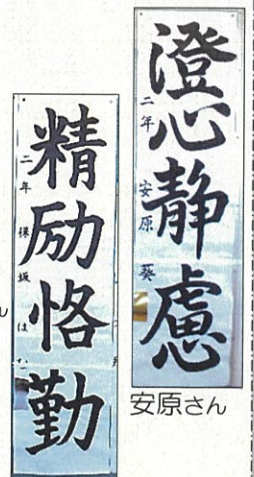 澄心静慮
二年 安原 葵
安原さん
精励恪勤
二年 保坂 は